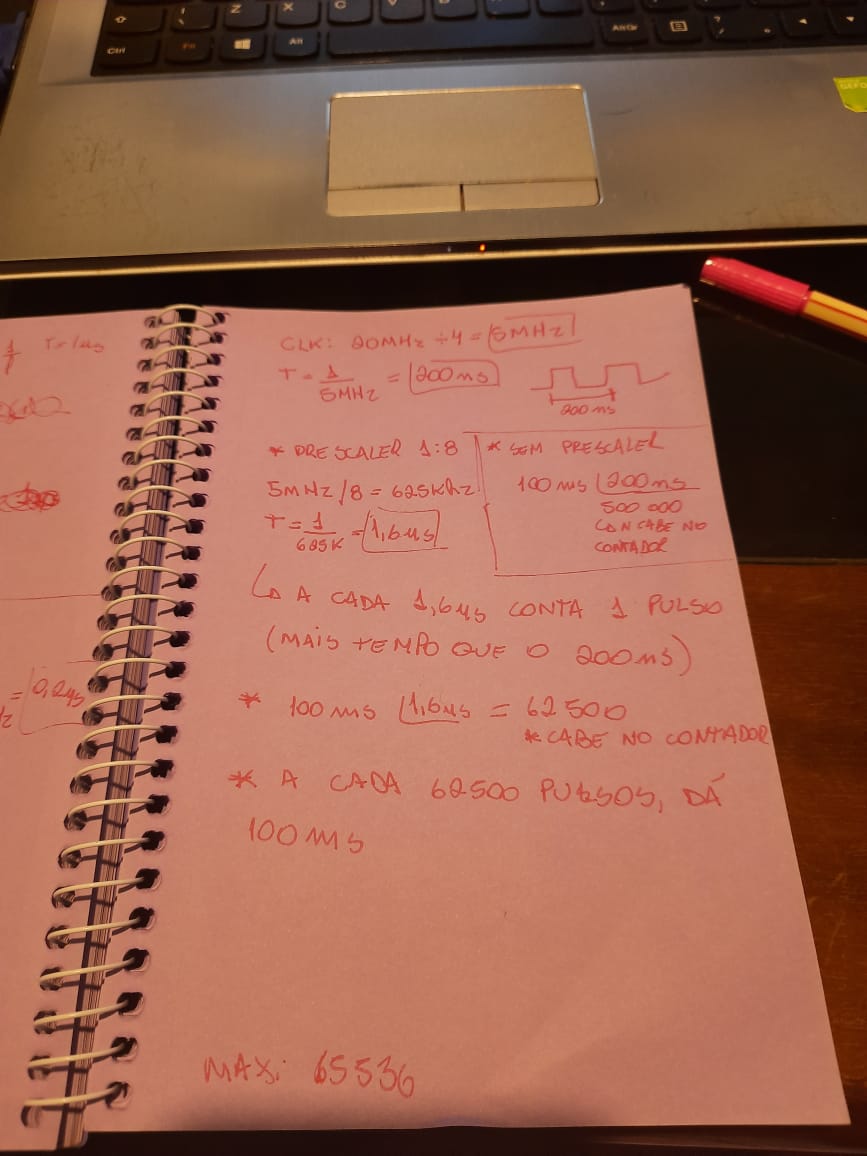 Z X C V
Ctrl Fn Alt AltGr
CLK: 20MHz ÷4 = 5MHz
T = 1/5MHz = 200ns
200 ns
* PRESCALER 1:8
5MHz/8 = 625Khz
T = 1/625K = 1,6us
* SEM PRESCALER
100 ms 200ns
500 000
NO
CONTADOR
↳ A CADA 1,6us CONTA 1 PULSO
(MAIS TEMPO QUE O 200ns)
* 100 ms 1,6us = 62500
* CABE NO CONTADOR
* A CADA 62500 PULSOS, DÁ
100 ms
MAX: 65536
= 0,2us